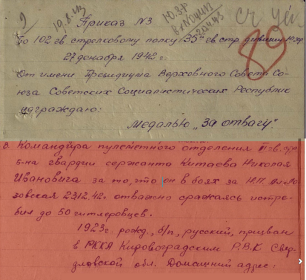 Приказ № 3
По 102 гв стрелковому полку 35 гв стр дивизии
27 декабря 1942 г.
От имени Президиума Верховного Совета Сою-
за Советских Социалистических Республик
награждаю:
Медалью "За отвагу"
Командира пулеметного отделения
гвардии сержанта Китаева Николая
Ивановича за то, что он в боях за
23.12.42. отважно сражаясь истре-
бил до 50 гитлеровцев.
1923 г. рожд., б/п, русский, призван
в РККА Кировоградским Р.В.К Свер-
дловской обл. Домашний адрес.